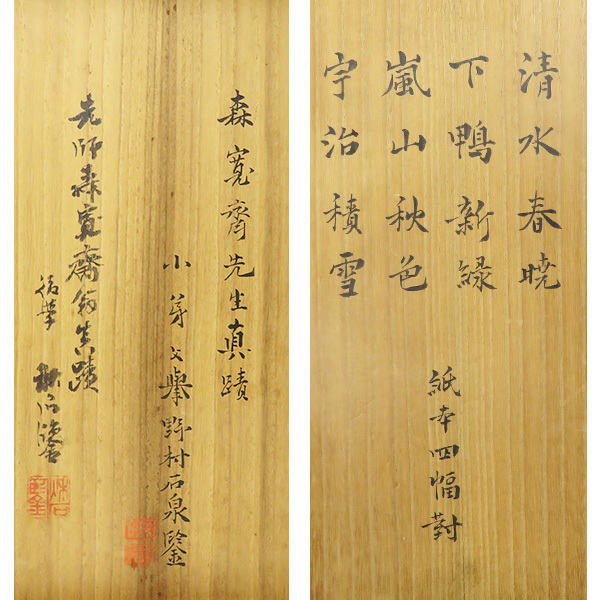 清水春暁
下鴨新緑
嵐山秋色
宇治積雪
紙本四幅対
森寛齋先生真蹟
小芽文挙野村石泉鑒
先師森寛齋翁真蹟
秋石鑒